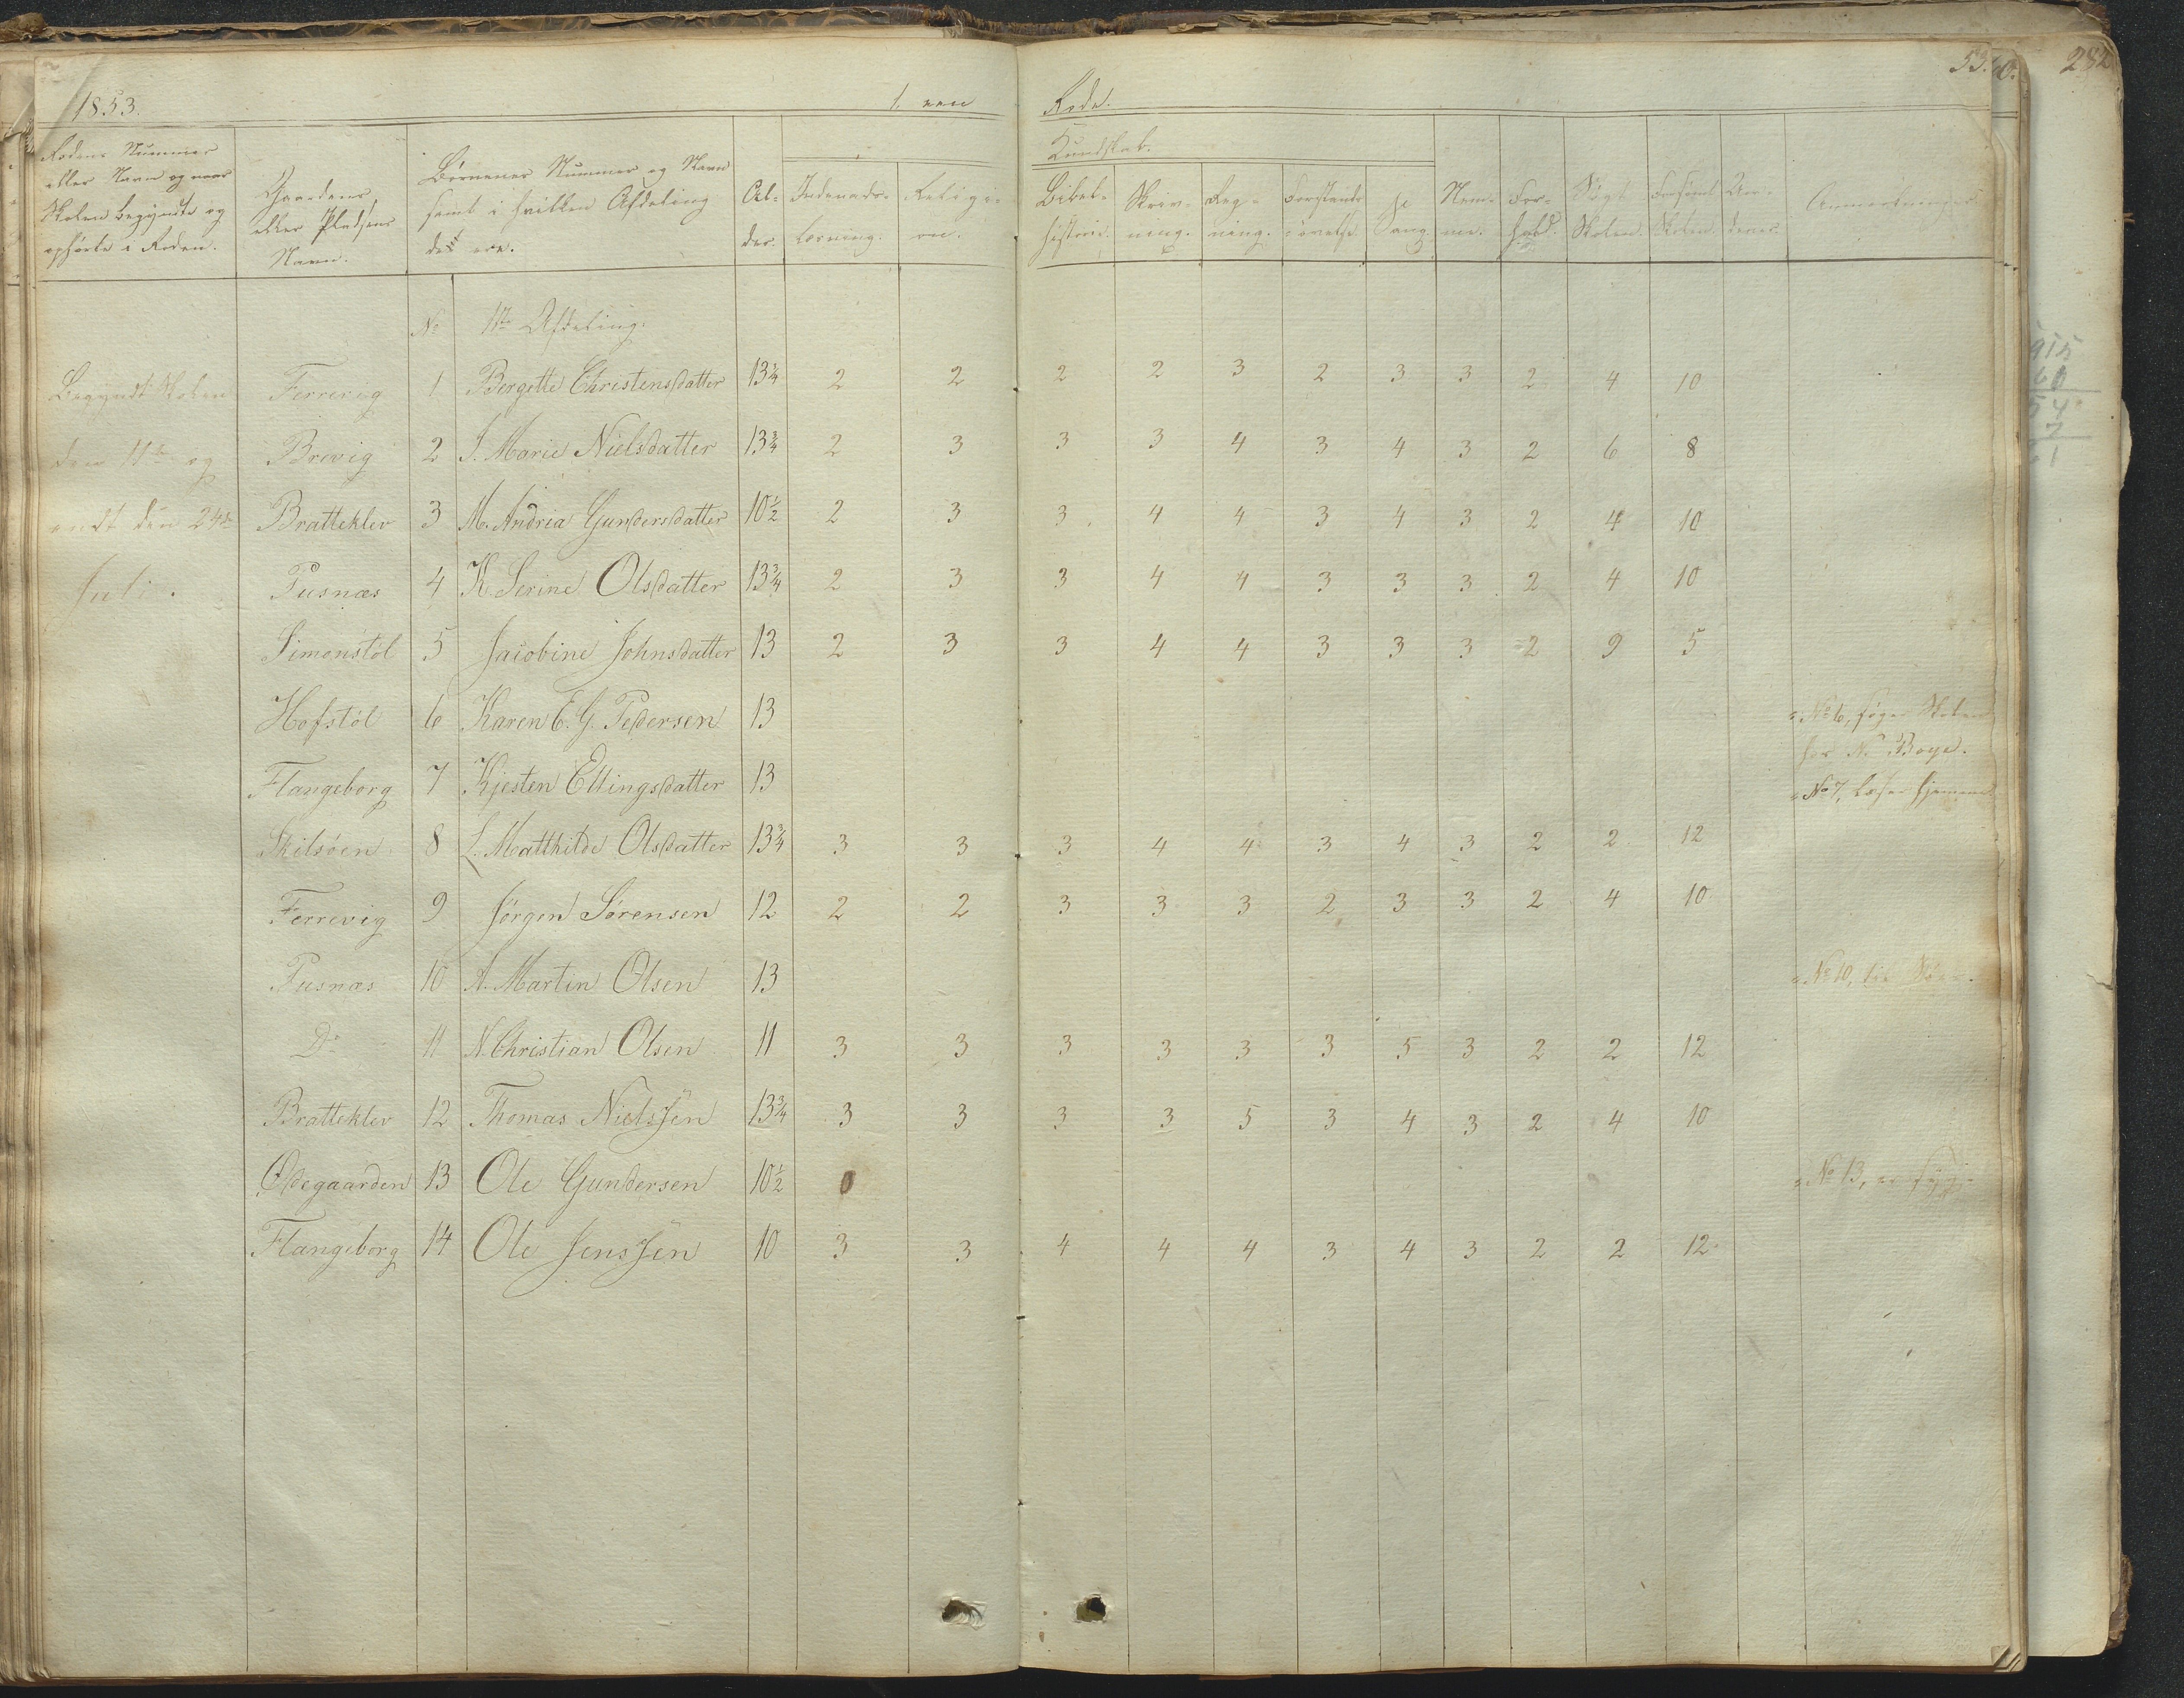 1853. 1. een Rode. 53.
282
Rodens Nummer eller Navn og naar Skolen begyndte og ophørte i Roden. Gaardens eller Pladsens Navn. Børnenes Nummer og Navn samt i hvilken Afdeling de ere. Alder. Indenadslæsning. Religion. Kundskab. Bibelhistorie. Skrivning. Regning. Forstandsøvelse. Sang. Nemme. Forhold. Søgt Skolen. Forsømt Skolen. Anmærkninger.
No 1ste Afdeling.
Begyndt Skolen Ferrevig 1 Bergette Christensdatter 13¾ 2 2 2 2 3 2 3 3 2 4 10
den 11te og Brevig 2 J. Marie Nielsdatter 13¾ 2 3 3 3 4 3 4 3 2 6 8
endt den 24de Bratteklev 3 M. Andria Gundersdatter 10½ 2 3 3 4 4 3 4 3 2 4 10
Juli. Pusnæs 4 K. Serine Olsdatter 13¾ 2 3 3 4 4 3 3 3 2 4 10
Simonstøl 5 Jacobine Johnsdatter 13 2 3 3 4 4 3 3 3 2 9 5
Hofstøl 6 Karen E. G. Pedersen 13 No 6, søger Skolen
hos N. Boye.
Flangeborg 7 Kjesten Ellingsdatter 13 No 7, læser hjemme.
Skilsøen 8 L. Matthilde Olsdatter 13¾ 3 3 3 4 4 3 4 3 2 2 12
Ferrevig 9 Jørgen Sørensen 12 2 2 3 3 3 2 3 3 2 4 10
Pusnæs 10 A. Martin Olsen 13 No 10,
Do 11 N. Christian Olsen 11 3 3 3 3 3 3 5 3 2 2 12
Bratteklev 12 Thomas Nielssen 13¾ 3 3 3 3 5 3 4 3 2 4 10
Ødegaarden 13 Ole Gundersen 10½ 0 No 13, er syg.
Flangeborg 14 Ole Jenssen 10 3 3 4 4 4 3 4 3 2 2 12